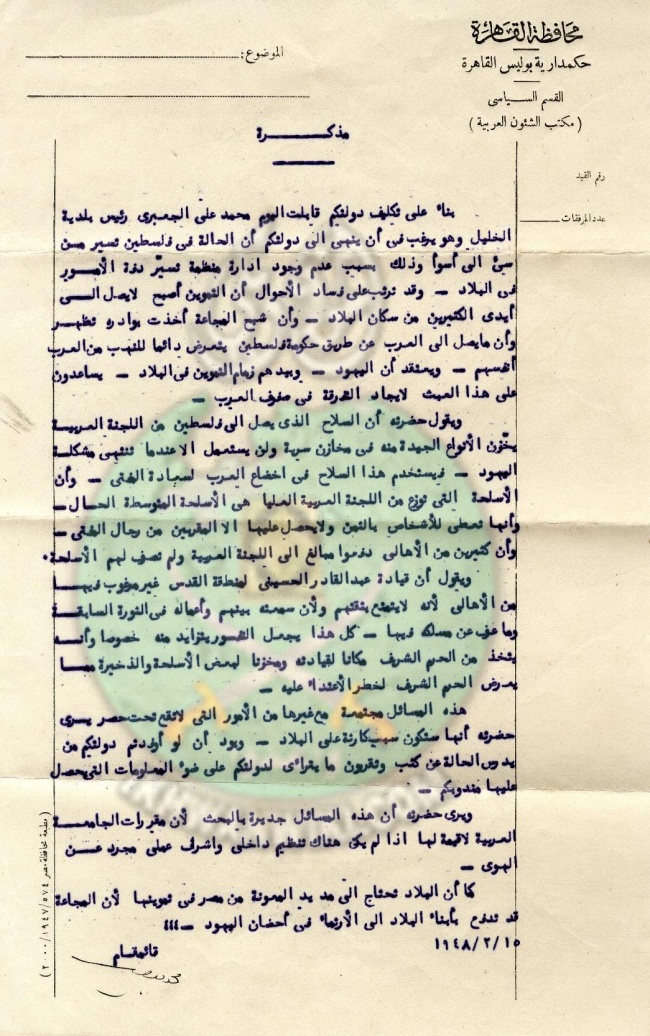 محافظة القاهرة
حكمدارية بوليس القاهرة
القسم السياسى
( مكتب الشئون العربية )
الموضوع:
رقم القيد
عدد المرفقات
مذكرة
بناء على تكليف دولتكم قابلت اليوم محمد على الجعبرى رئيس بلدية
الخليل وهو يرغب فى أن ينهى الى دولتكم أن الحالة فى فلسطين تسير من
سئ الى أسوأ وذلك بسبب عدم وجود ادارة منظمة تسيّر دفة الأمور
فى البلاد – وقد ترتب على فساد الأحوال أن التموين أصبح لايصل الى
أيدى الكثيرين من سكان البلاد – وأن شبح المجاعة أخذت بوادره تظهر
وأن مايصل الى العرب عن طريق حكومة فلسطين يتعرض دائما للنهب من العرب
أنفسهم – ويعتقد أن اليهود – وبيدهم زمام التموين فى البلاد – يساعدون
على هذا العبث لايجاد التفرقة فى صفوف العرب –
ويقول حضرته أن السلاح الذى يصل الى فلسطين من اللجنة العربية
يخّزن الأنواع الجيدة منه فى مخازن سرية ولن يستعمل الا عندما تنتهى مشكلة
اليهود – فيستخدم هذا السلاح فى اخضاع العرب لسيادة المفتى – وأن
الأسلحة التى توزع من اللجنة العربية العليا هى الأسلحة المتوسطة الحال –
وأنها تعطى للأشخاص بالثمن ولايحصل عليها الا المقربين من رجال المفتى –
وأن كثيرين من الأهالى دفعوا مبالغ الى اللجنة العربية ولم تصرف لهم الأسلحة.
ويقول أن قيادة عبدالقادر الحسينى لمنطقة القدس غير مرغوب فيها
من الأهالى لأنه لايتمتع بثقتهم ولأن سمعته بينهم وأعماله فى الثورة السابقة
وماعرف عن مسلكه فيها – كل هذا يجعل النفور يتزايد منه خصوصا وأنه
يتخذ من الحرم الشريف مكانا لقيادته ومخزنا لبعض الأسلحة والذخيرة مما
يعرض الحرم الشريف لخطر الأعتداء عليه –
هذه المسائل مجتمعة مع غيرها من الأمور التى لاتقع تحت حصر يرى
حضرته أنها ستكون سبب كارثة على البلاد – ويود أن لو أوفدتم دولتكم من
يدرس الحالة عن كثب وتقررون ما يتراءى لدولتكم على ضوء المعلومات التى يحصل
عليها مندوبكم –
ويرى حضرته أن هذه المسائل جديرة بالبحث لأن مقررات الجامعة
العربية لاقيمة لها اذا لم يكن هناك تنظيم داخلى واشرف عملى مجرد عن
الهوى –
كما أن البلاد تحتاج الى مد يد المعونة من مصر فى تموينها لأن المجاعة
قد تدفع بأبناء البلاد الى الأرتماء فى أحضان اليهود –
١٩٤٨/٢/١٥
قائمقام
( مطبعة محافظة مصر ١٩٤٧/٥٧٤/ ٢٠٠٠ )